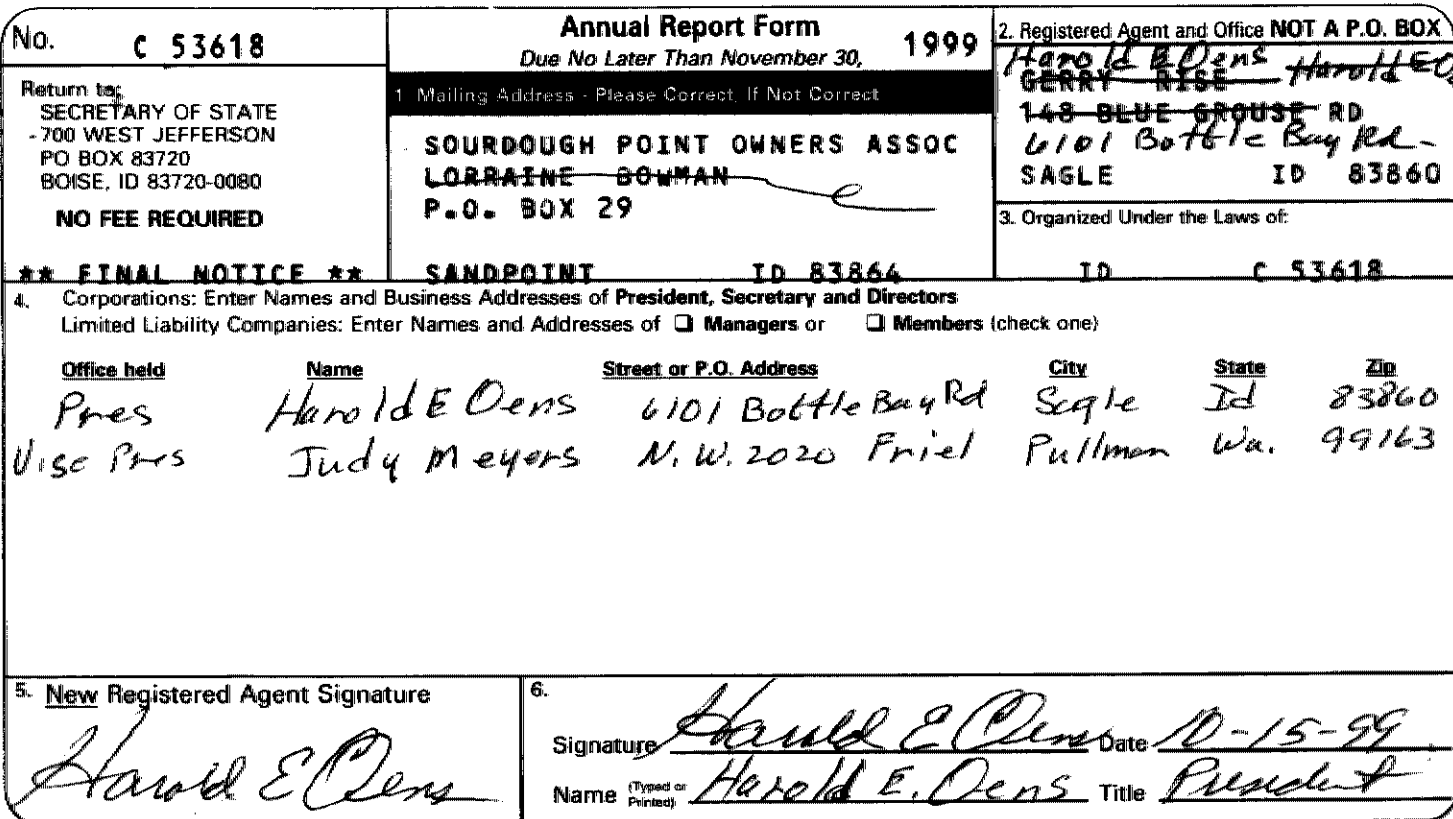 No. C 53618
Return to:
SECRETARY OF STATE
700 WEST JEFFERSON
PO BOX 83720
BOISE, ID 83720-0080
NO FEE REQUIRED
** FINAL NOTICE **
Annual Report Form 1999
Due No Later Than November 30,
1 Mailing Address - Please Correct, If Not Correct
SOURDOUGH POINT OWNERS ASSOC
LORRAINE BOWMAN
P.O. BOX 29
SANDPOINT ID 83864
2. Registered Agent and Office NOT A P.O. BOX
Harold E Oens Harold E O
GERRY RISE
148 BLUE GROUSE RD
6101 Bottle Bay Rd
SAGLE ID 83860
3. Organized Under the Laws of:
ID C 53618
4. Corporations: Enter Names and Business Addresses of President, Secretary and Directors
Limited Liability Companies: Enter Names and Addresses of ☐ Managers or ☐ Members (check one)
Office held Name Street or P.O. Address City State Zip
Pres Harold E Oens 6101 Bottle Bay Rd Sagle Id 83860
Vise Pres Judy Meyers N.W. 2020 Friel Pullman Wa. 99163
5. New Registered Agent Signature
Harold E Oens
6.
Signature Harold E Oens Date 10-15-99
Name (Typed or Printed) Harold E. Oens Title President